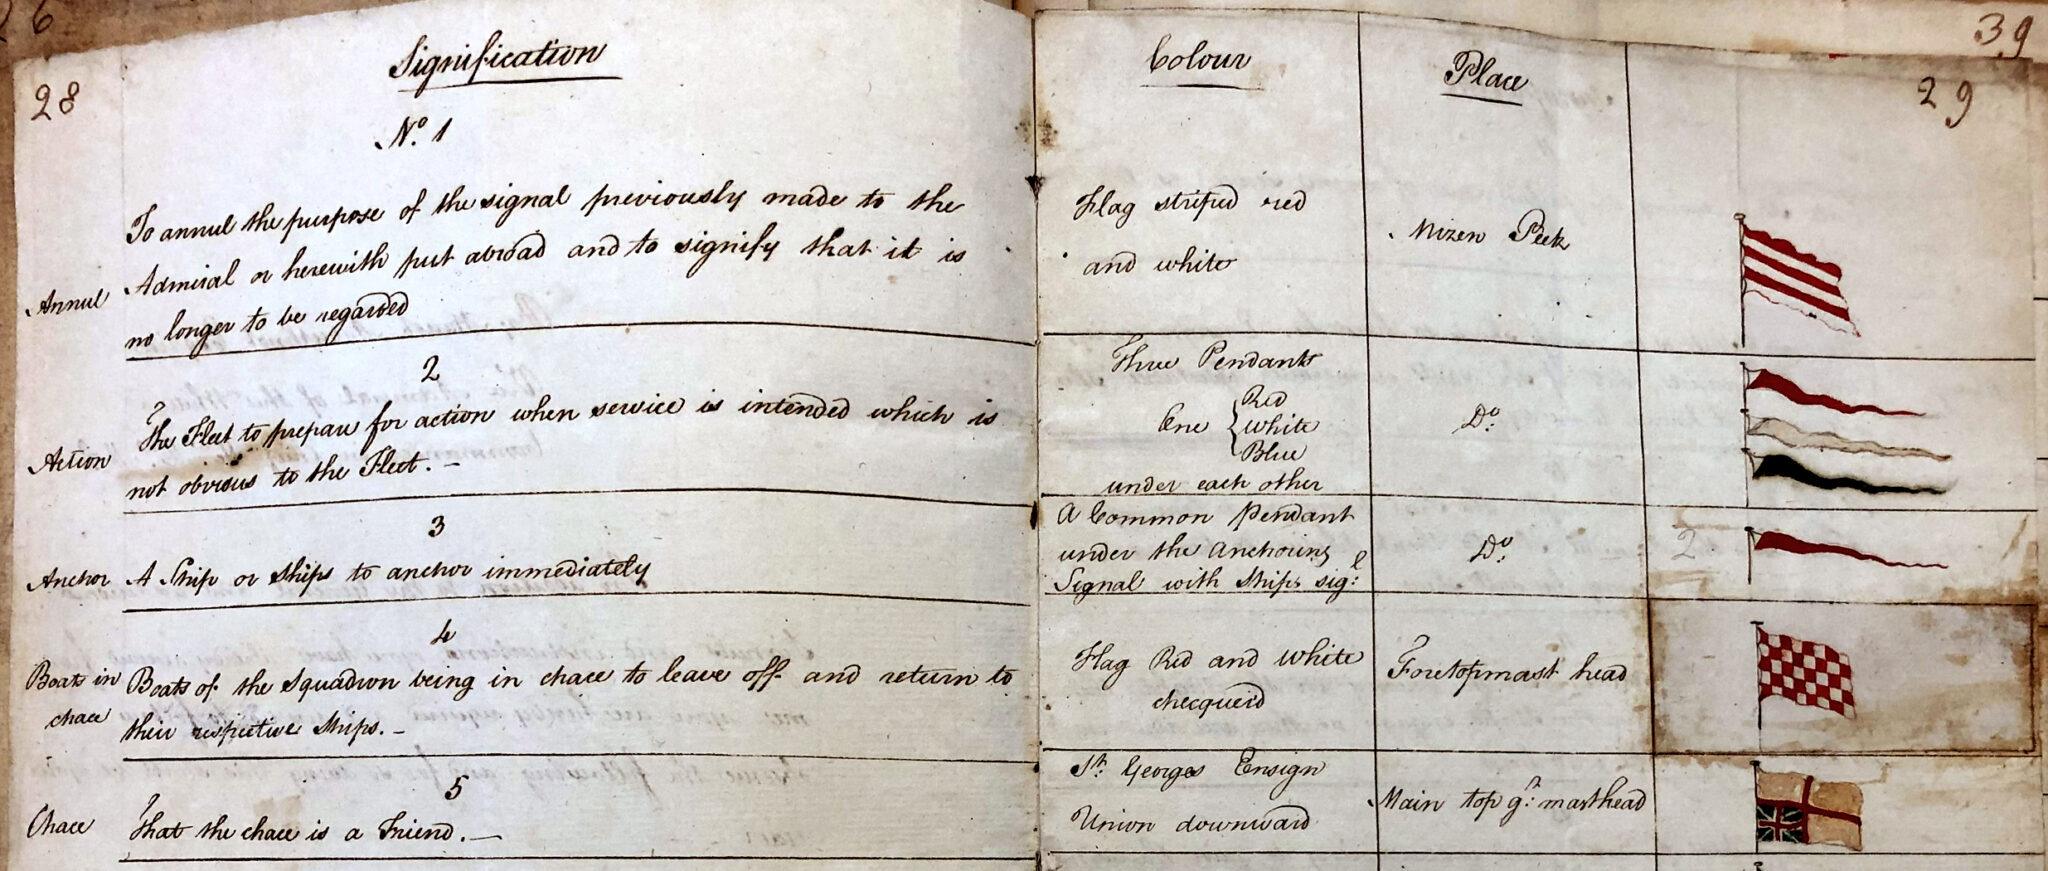 26
39
28
29
Signification
Colour
Place
No. 1
Annul
To annul the purpose of the signal previously made to the
Admiral or herewith put abroad and to signify that it is
no longer to be regarded
Flag striped red
and white
Mizen Peek
2
Action
The Fleet to prepare for action when service is intended which is
not obvious to the Fleet. –
Three Pendants
One { Red
White
Blue
under each other
Do.
3
Anchor
A Ship or Ships to anchor immediately
A Common Pendant
under the Anchoring
Signal with Ships sigl.
Do.
2
4
Boats in
chace
Boats of the Squadron being in chace to leave off and return to
their respective Ships. –
Flag Red and White
chequeid
Foretopmast head
5
Chace
That the chace is a Friend. –
St. Georges Ensign
Union downward
Main top gt. masthead